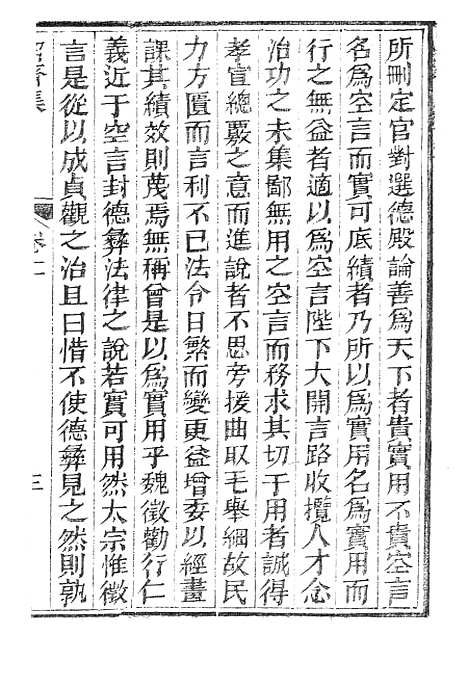 所刪定官對選德殿論善為天下者貴實用不貴空言
名為空言而實可底績者乃所以為實用名為實用而
行之無益者適以為空言陛下大開言路收攬人才念
治功之未集鄙無用之空言而務求其切于用者誠得
孝宣總覈之意而進說者不思旁援曲取毛舉細故民
力方匱而言利不已法令日繁而變更益增委以經畫
課其績效則蔑焉無稱曾是以為實用乎魏徵勸行仁
義近于空言封德彝法律之說若實可用然太宗惟徵
言是從以成貞觀之治且曰惜不使德彝見之然則孰
集
卷十二
三